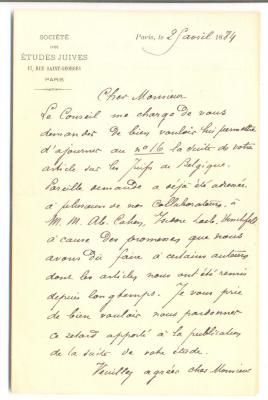 SOCIÉTÉ
DES
ÉTUDES JUIVES
17, RUE SAINT-GEORGES
PARIS
Paris, le 25 avril 1884
Cher Monsieur
Le Conseil me charge de vous
demander de bien vouloir lui permettre
d'ajourner au nº 16 la suite de votre
article sur les Juifs de Belgique.
Pareille demande a déjà été adressée
à plusieurs de nos Collaborateurs, à
M. M. Ab. Cahen, Isidore Loeb,
à cause des promesses que nous
avons dû faire à certains auteurs
dont les articles nous ont été remis
depuis longtemps. Je vous prie
de bien vouloir nous pardonner
ce retard apporté à la publication
de la suite de votre étude.
Veuillez agréer cher Monsieur